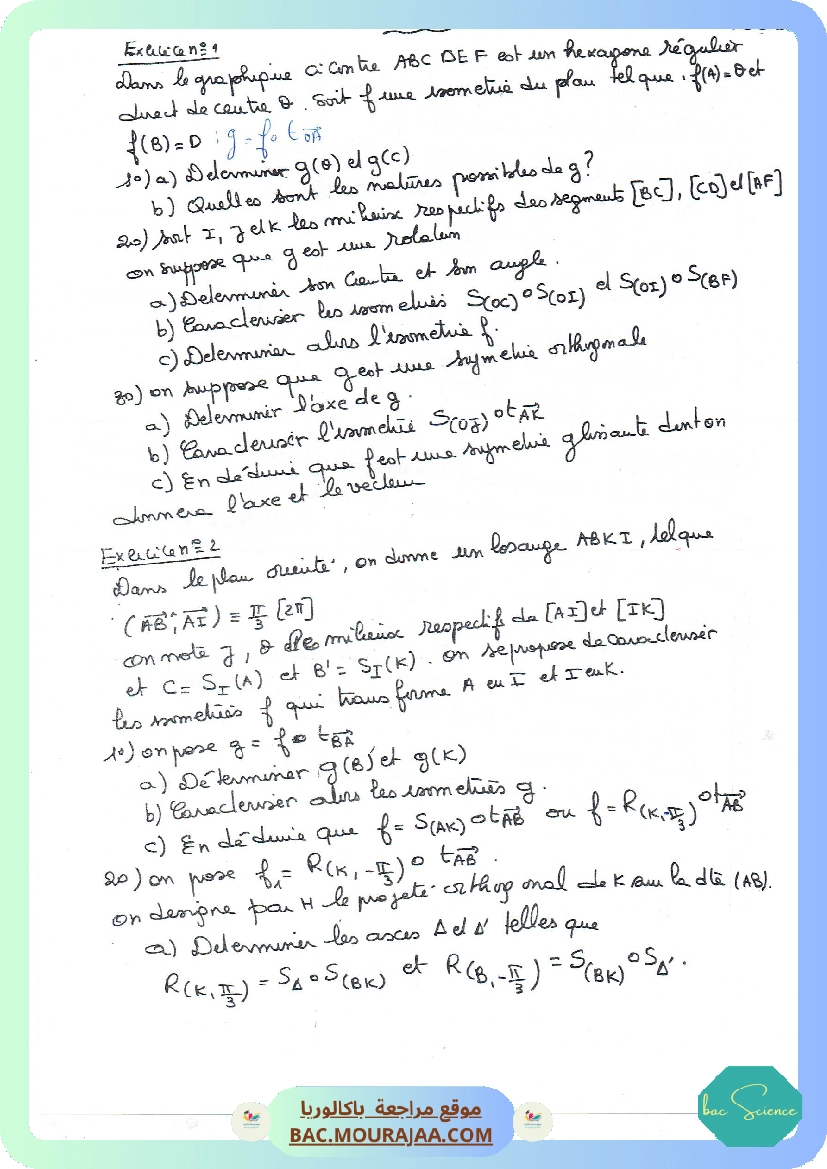 Exercice n° 1
Dans le graphique ci contre ABCDEF est un hexagone régulier
direct de centre O. Soit f une isometrie du plan tel que : f(A) = O et
f(B) = D ; g = f o t_OA→
1°) a) Determiner g(O) et g(C)
b) Quelles sont les natures possibles de g ?
2°) soit I, J et K les milieux respectifs des segments [BC], [CD] et [AF]
on suppose que g est une rotation
a) Determiner son Centre et son angle.
b) Caracteriser les isometries S(OC) o S(OI) et S(OI) o S(BF)
c) Determiner alors l'isometrie f.
3°) on suppose que g est une symetrie orthogonale
a) Determinir l'axe de g.
b) Caracteriser l'isometrie S(OJ) o t_AK→
c) En déduire que f est une symetrie glissante dont on
donnera l'axe et le vecteur
Exercice n° 2
Dans le plan orienté, on donne un losange ABKI, tel que
(AB→ ^, AI→) ≡ π/3 [2π]
on note J, O les milieux respectifs de [AI] et [IK]
et C = S_I(A) et B' = S_I(K). on se propose de caracteriser
les isometries f qui transforme A en I et I en K.
1°) on pose g = f o t_BA→
a) Déterminer g(B) et g(K)
b) Caracteriser alors les isometries g.
c) En déduire que f = S(AK) o t_AB→ ou f = R(K, -π/3) o t_AB→
2°) on pose f₁ = R(K, -π/3) o t_AB→.
on designe par H le projeté orthogonal de K sur la dte (AB).
a) Determiner les axes Δ et Δ' telles que
R(K, π/3) = S_Δ o S(BK) et R(B, -π/3) = S(BK) o S_Δ'.
موقع مراجعة باكالوريا
BAC.MOURAJAA.COM
bac Science